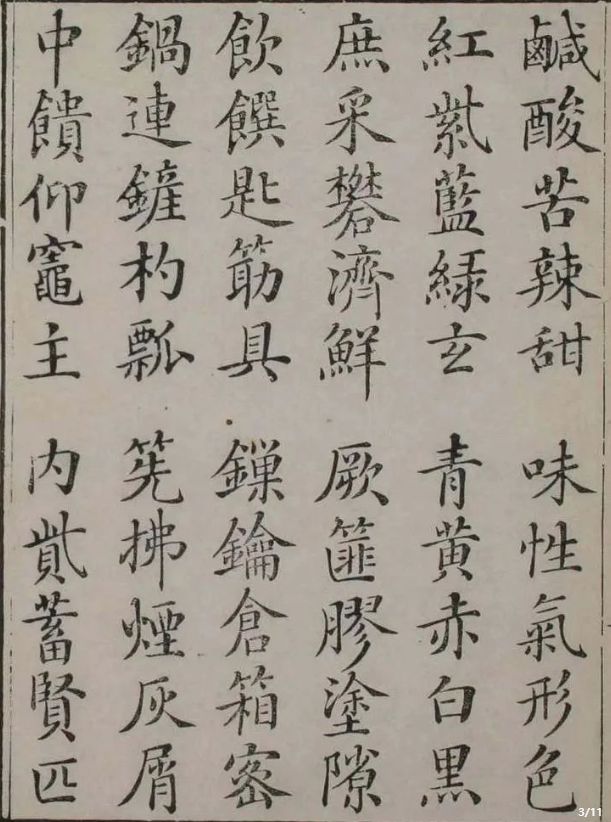 鹹酸苦辣甜 味性氣形色
紅紫藍綠玄 青黃赤白黑
庶采礬濟鮮 厥篚膠塗隙
飲饌匙筯具 鏁鑰倉箱密
鍋連鏟杓瓢 筅拂煙灰屑
中饋仰竈主 内貲蓄賢匹
3/11